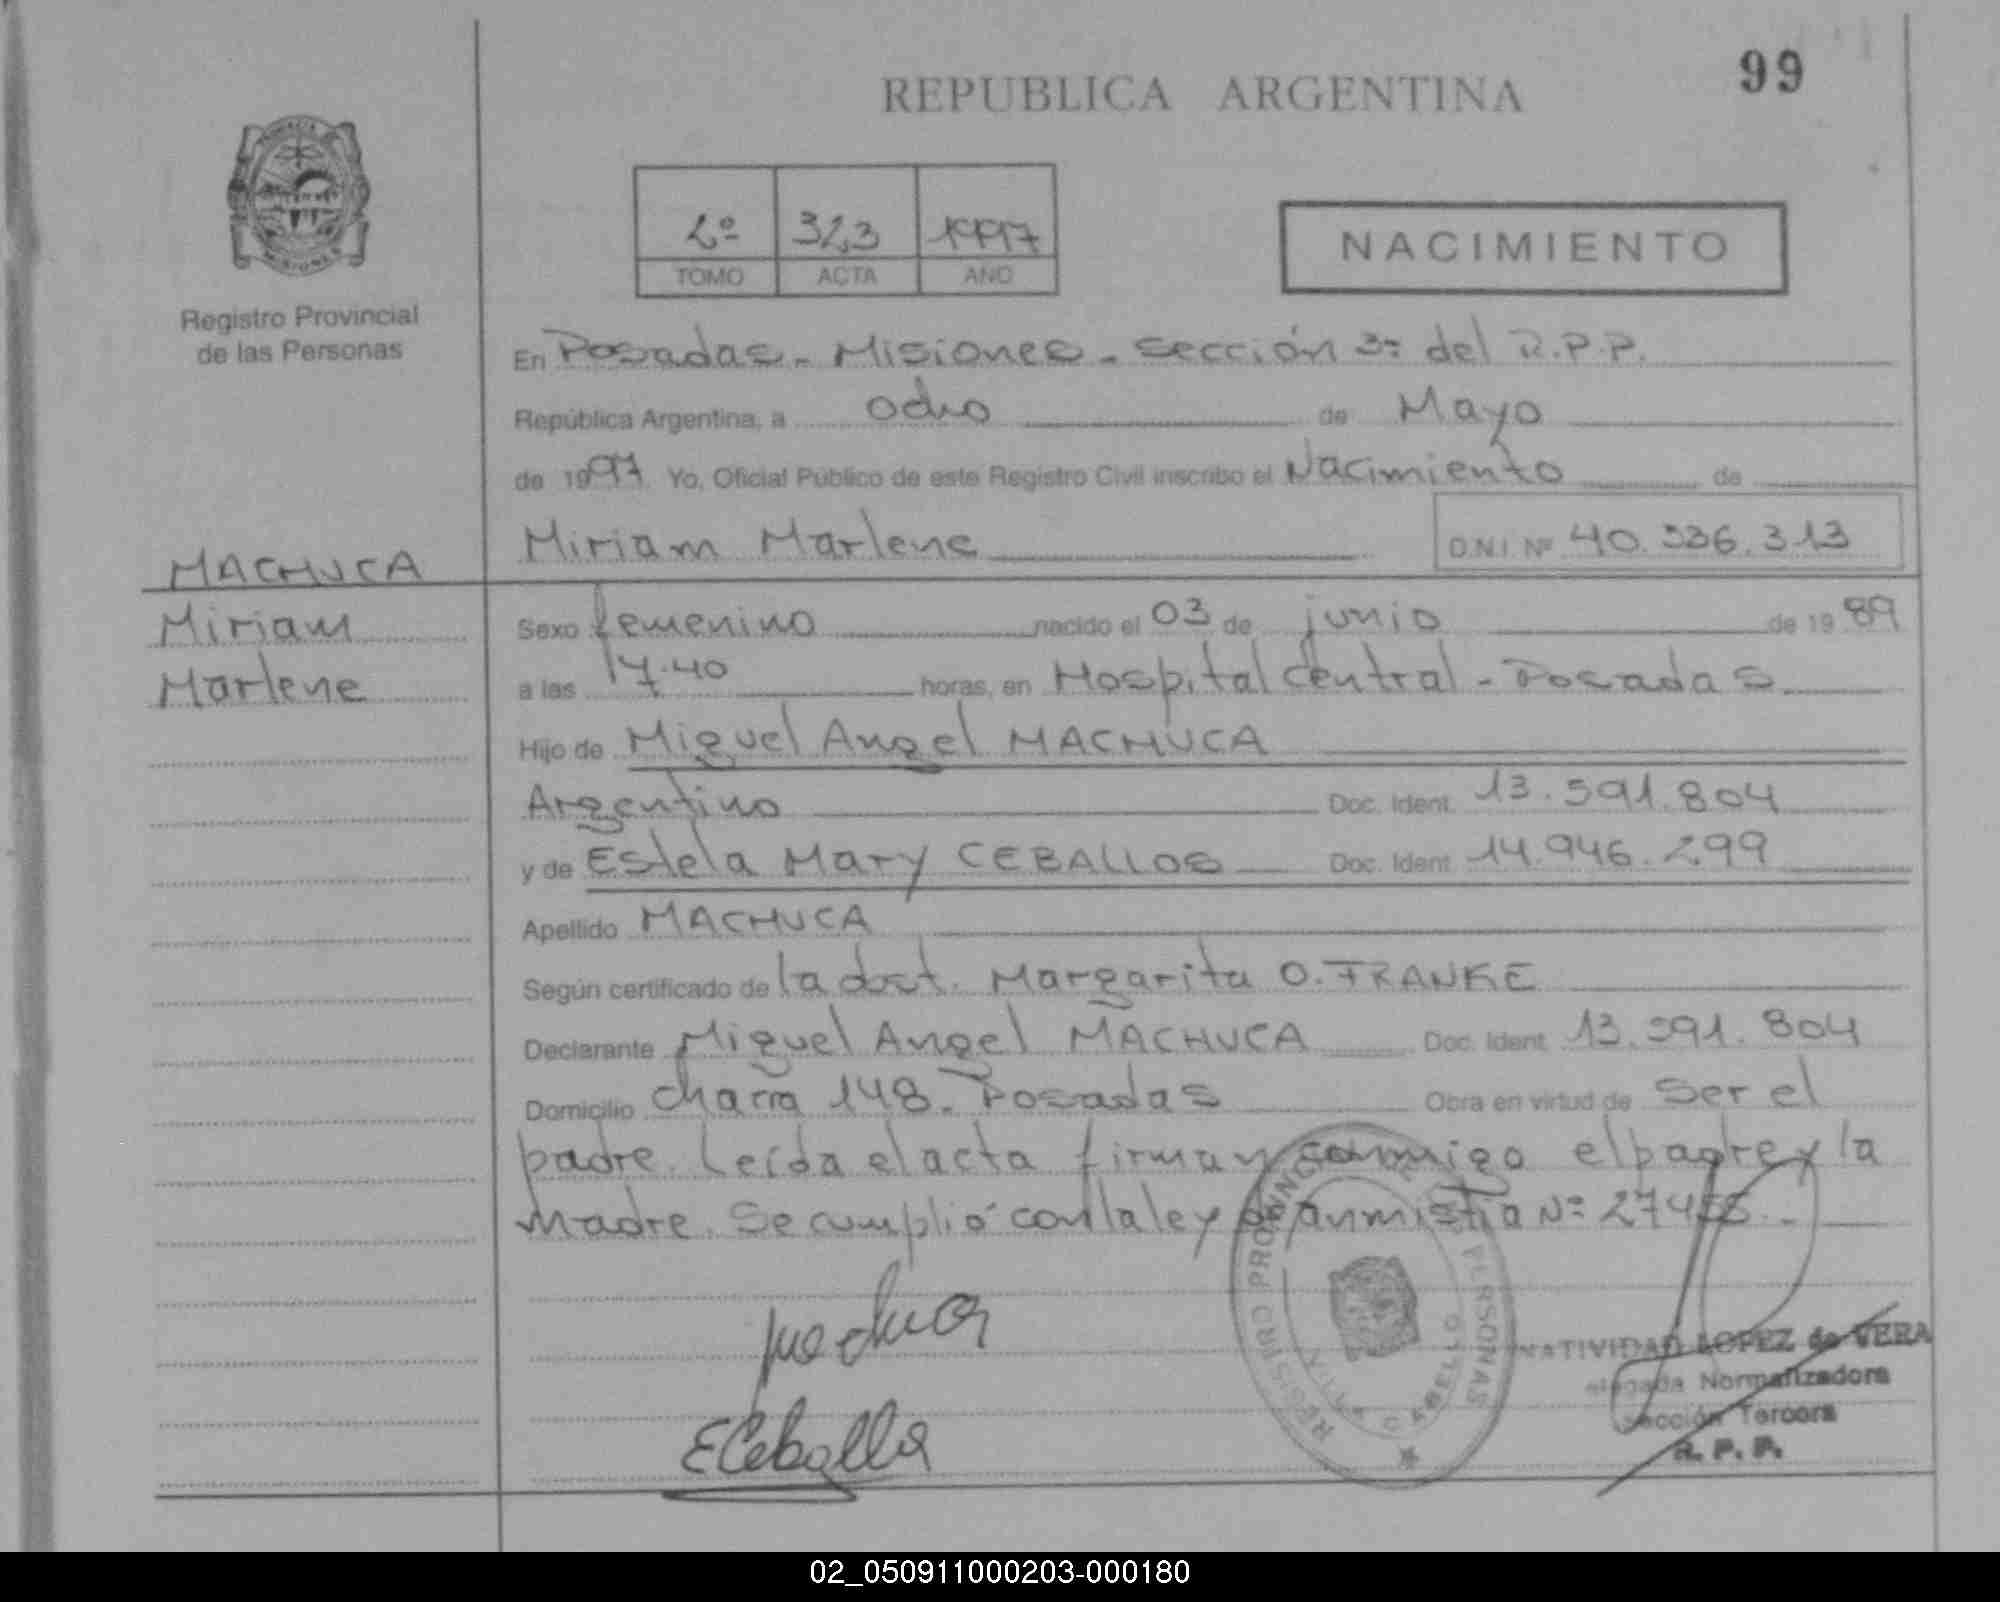 99
REPUBLICA ARGENTINA
2º 323 1997
TOMO ACTA AÑO
NACIMIENTO
Registro Provincial
de las Personas
En Posadas - Misiones - Sección 3ª del R.P.P.
República Argentina, a ocho de Mayo
de 1997. Yo, Oficial Público de este Registro Civil inscribo el Nacimiento de
Miriam Marlene D.N.I. Nº 40.336.313
MACHUCA
Miriam
Marlene
Sexo femenino nacido el 03 de junio de 1989
a las 17.40 horas, en Hospital Central - Posadas
Hijo de Miguel Angel MACHUCA
Argentino Doc. Ident. 13.591.804
y de Estela Mary CEBALLOS Doc. Ident. 14.946.299
Apellido MACHUCA
Según certificado de la doct. Margarita O. FRANKE
Declarante Miguel Angel MACHUCA Doc. Ident. 13.591.804
Domicilio chacra 148. Posadas Obra en virtud de ser el
padre. Leída el acta firman conmigo el padre y la
madre. Se cumplió con la ley de anmistía Nº
Machuca
ECeballo
REGISTRO PROVINCIAL DE LAS PERSONAS
VILLA CABELLO
NATIVIDAD LOPEZ de VERA
elegada Normalizadora
Sección Tercera
R. P. P.
02_050911000203-000180